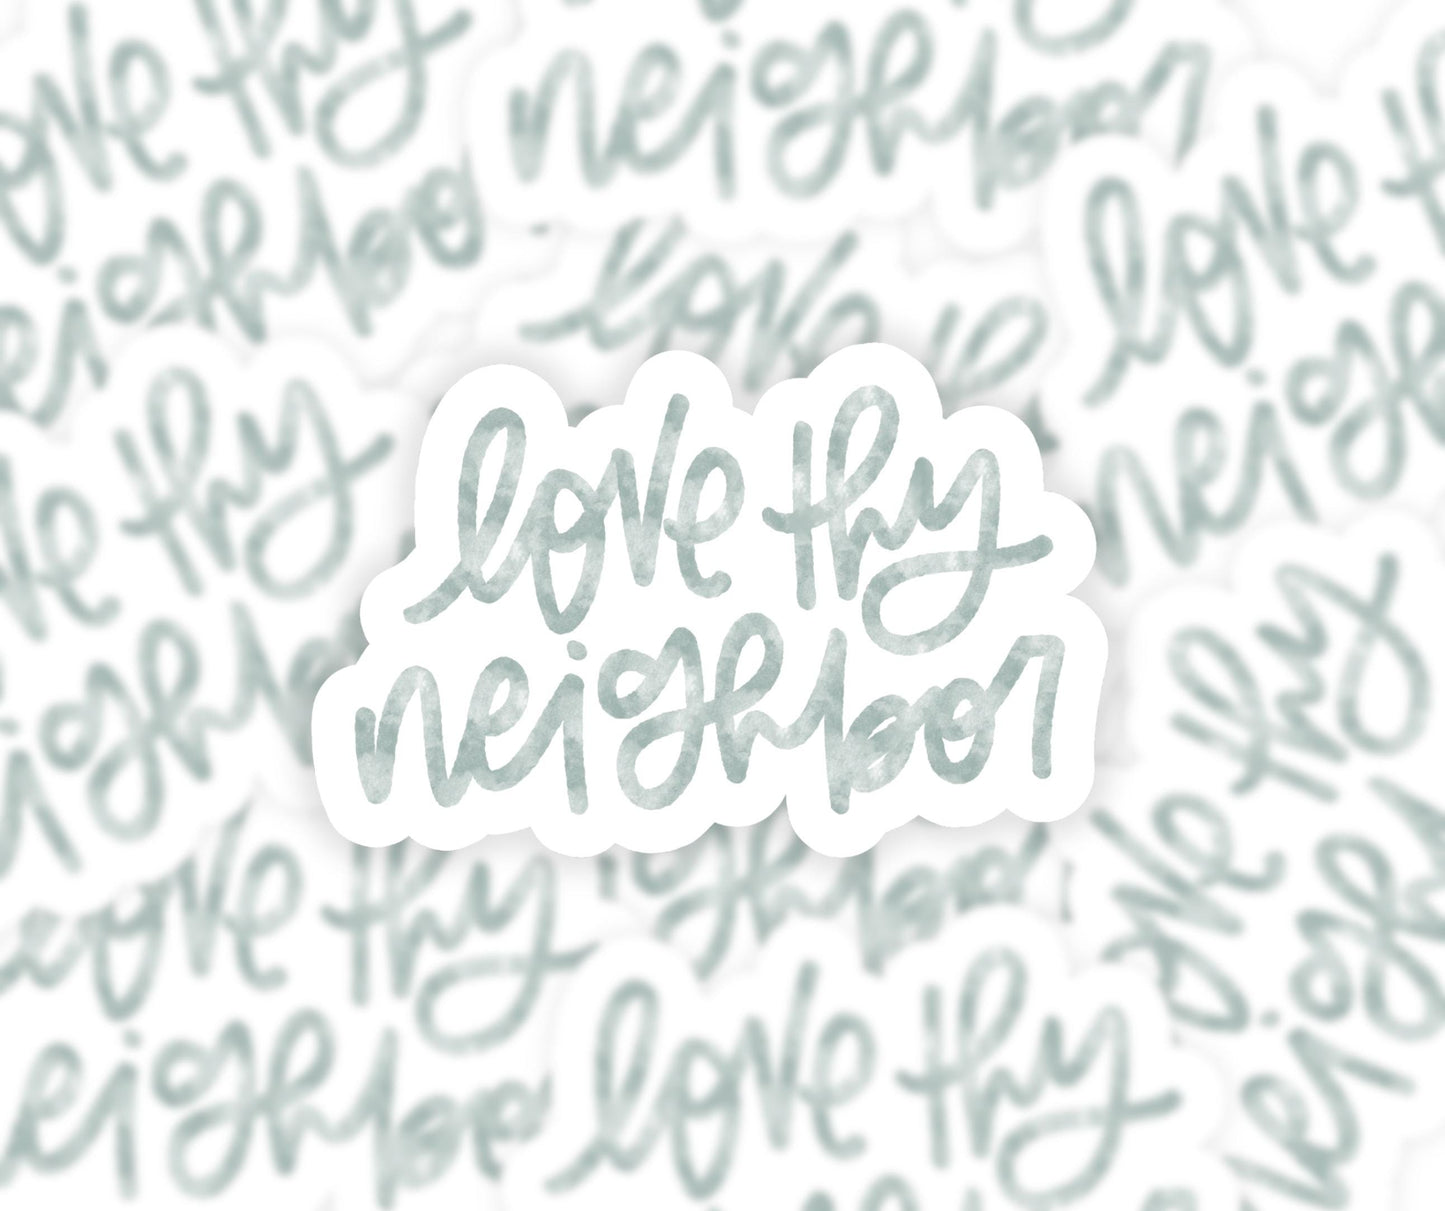 love thy
neighbor